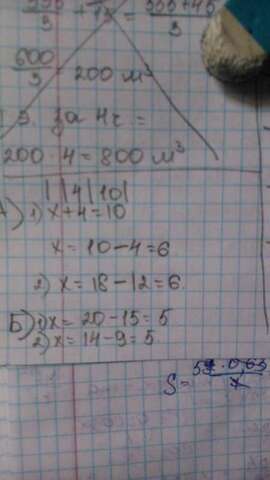 + 15 =
600/3 = 200 м³
3. За 4ч =
200 · 4 = 800 м³
| |4|10|
А) 1) x+4=10
x = 10-4=6
2) x = 18-12=6
Б) 1) x = 20-15=5
2) x = 14-9=5
S=